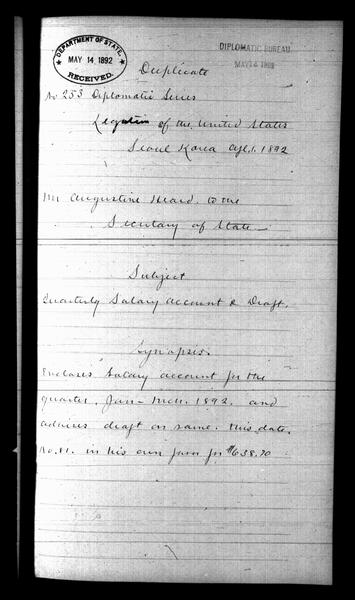 DEPARTMENT OF STATE,
MAY 14, 1892
RECEIVED.
DIPLOMATIC BUREAU
MAY 14 1892
Duplicate
No 253 Diplomatic Series
Legation of the United States
Seoul Korea Apl. 1. 1892
Mr Augustine Heard. to the
Secretary of State
Subject
Quarterly Salary account & Draft.
Synopsis.
Encloses Salary account for the
quarter, Jan - Mch. 1892. and
advises draft on same. this date.
No. 11. in his own favor for $638.70